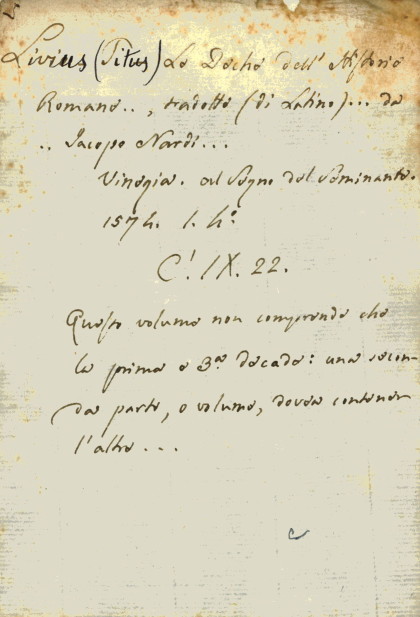 Livius (Titus) Le Deche dell' Historie
Romane.., tradotte (di Latino)... da
.. Jacopo Nardi...
Vinegia. al Segno del Seminante.
1574. 1. 4°
C! IX. 22.
Questo volume non comprende che
la prima e 3.ª decade: una secon-
da parte, o volume, dovea contener
l'altre...
c